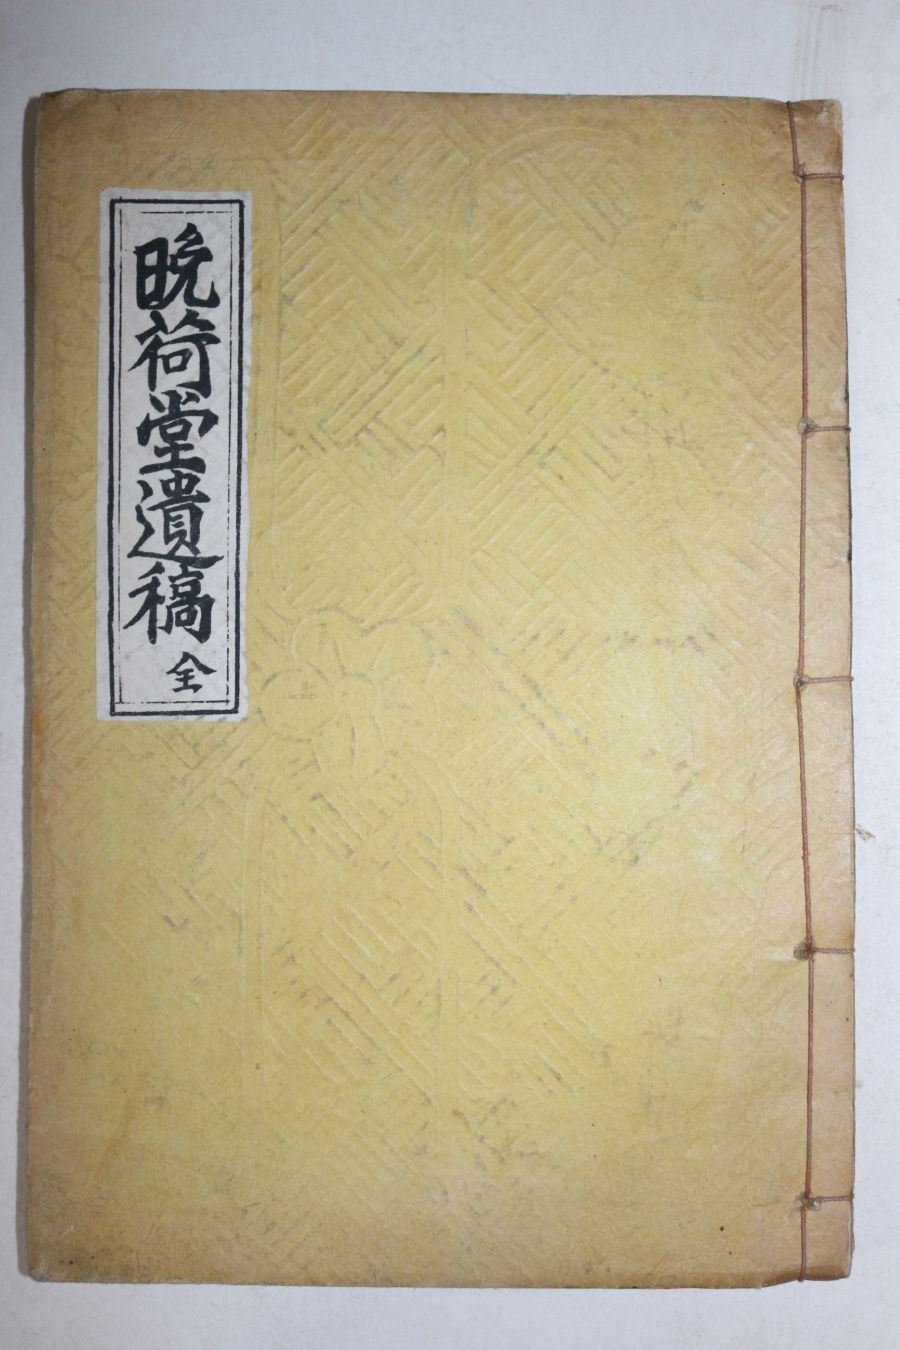 晩荷堂遺稿
全